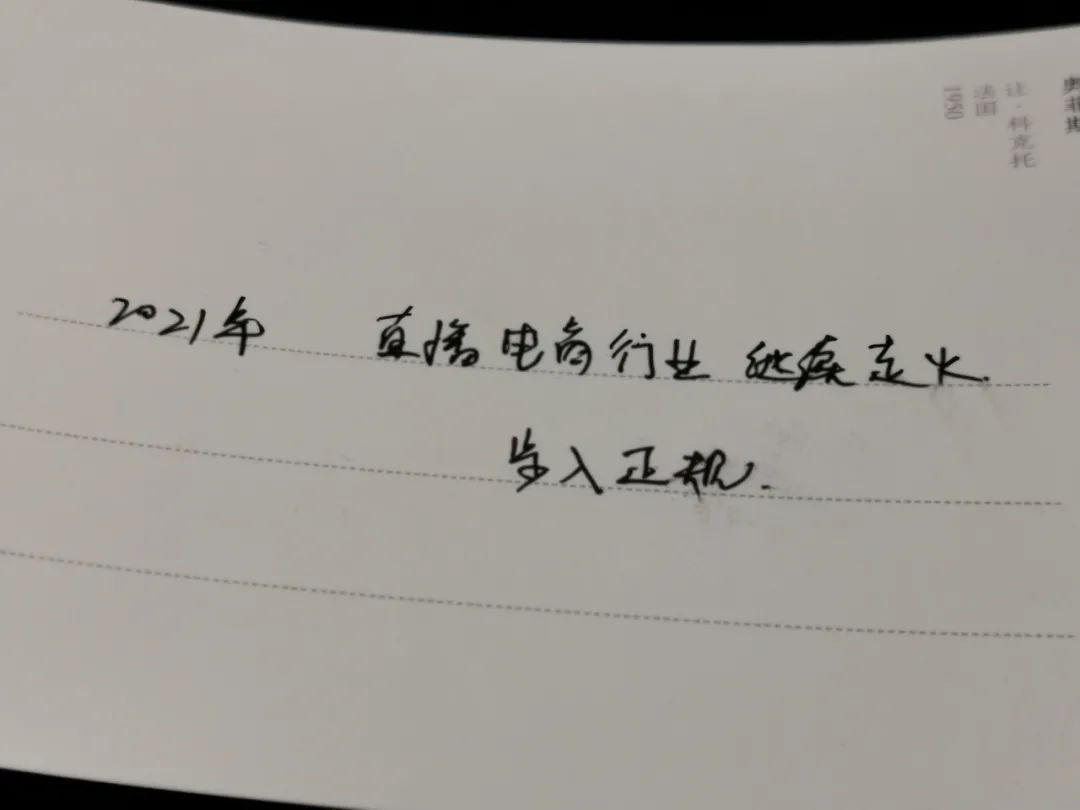 奥菲斯
让·科克托
法国
1950
2021年 直播电商行业 继续走火.
步入正规.